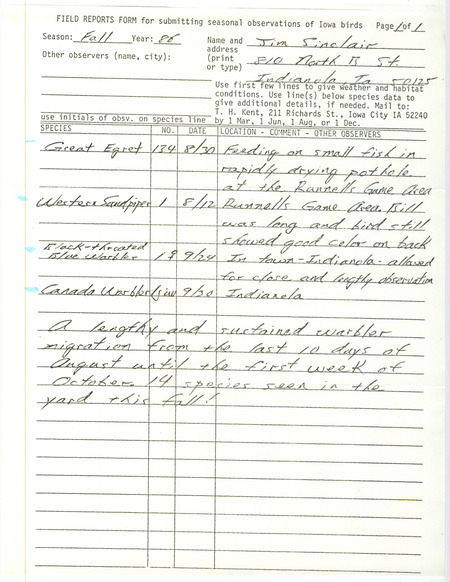 FIELD REPORTS FORM for submitting seasonal observations of Iowa birds Page 1 of 1
Season: Fall Year: 88 Name and Jim Sinclair
Other observers (name, city): address 810 North B St.
(print
or type) Indianola, Ia 50125
Use first few lines to give weather and habitat
conditions. Use line(s) below species data to
give additional details, if needed. Mail to:
T. H. Kent, 211 Richards St., Iowa City IA 52240
use initials of obsv. on species line by 1 Mar, 1 Jun, 1 Aug, or 1 Dec.
SPECIES NO. DATE LOCATION - COMMENT - OTHER OBSERVERS
Great Egret 134 8/30 Feeding on small fish in
rapidly drying pothole
at the Runnells Game Area
Western Sandpiper 1 8/12 Runnells Game Area. Bill
was long and bird still
showed good color on back
Black-throated
Blue Warbler 1 9/24 In town-Indianola- allowed
for close and lengthy observation
Canada Warbler 9/30 Indianola
A lengthy and sustained warbler
migration from the last 10 days of
August until the first week of
October. 14 species seen in the
yard this fall!